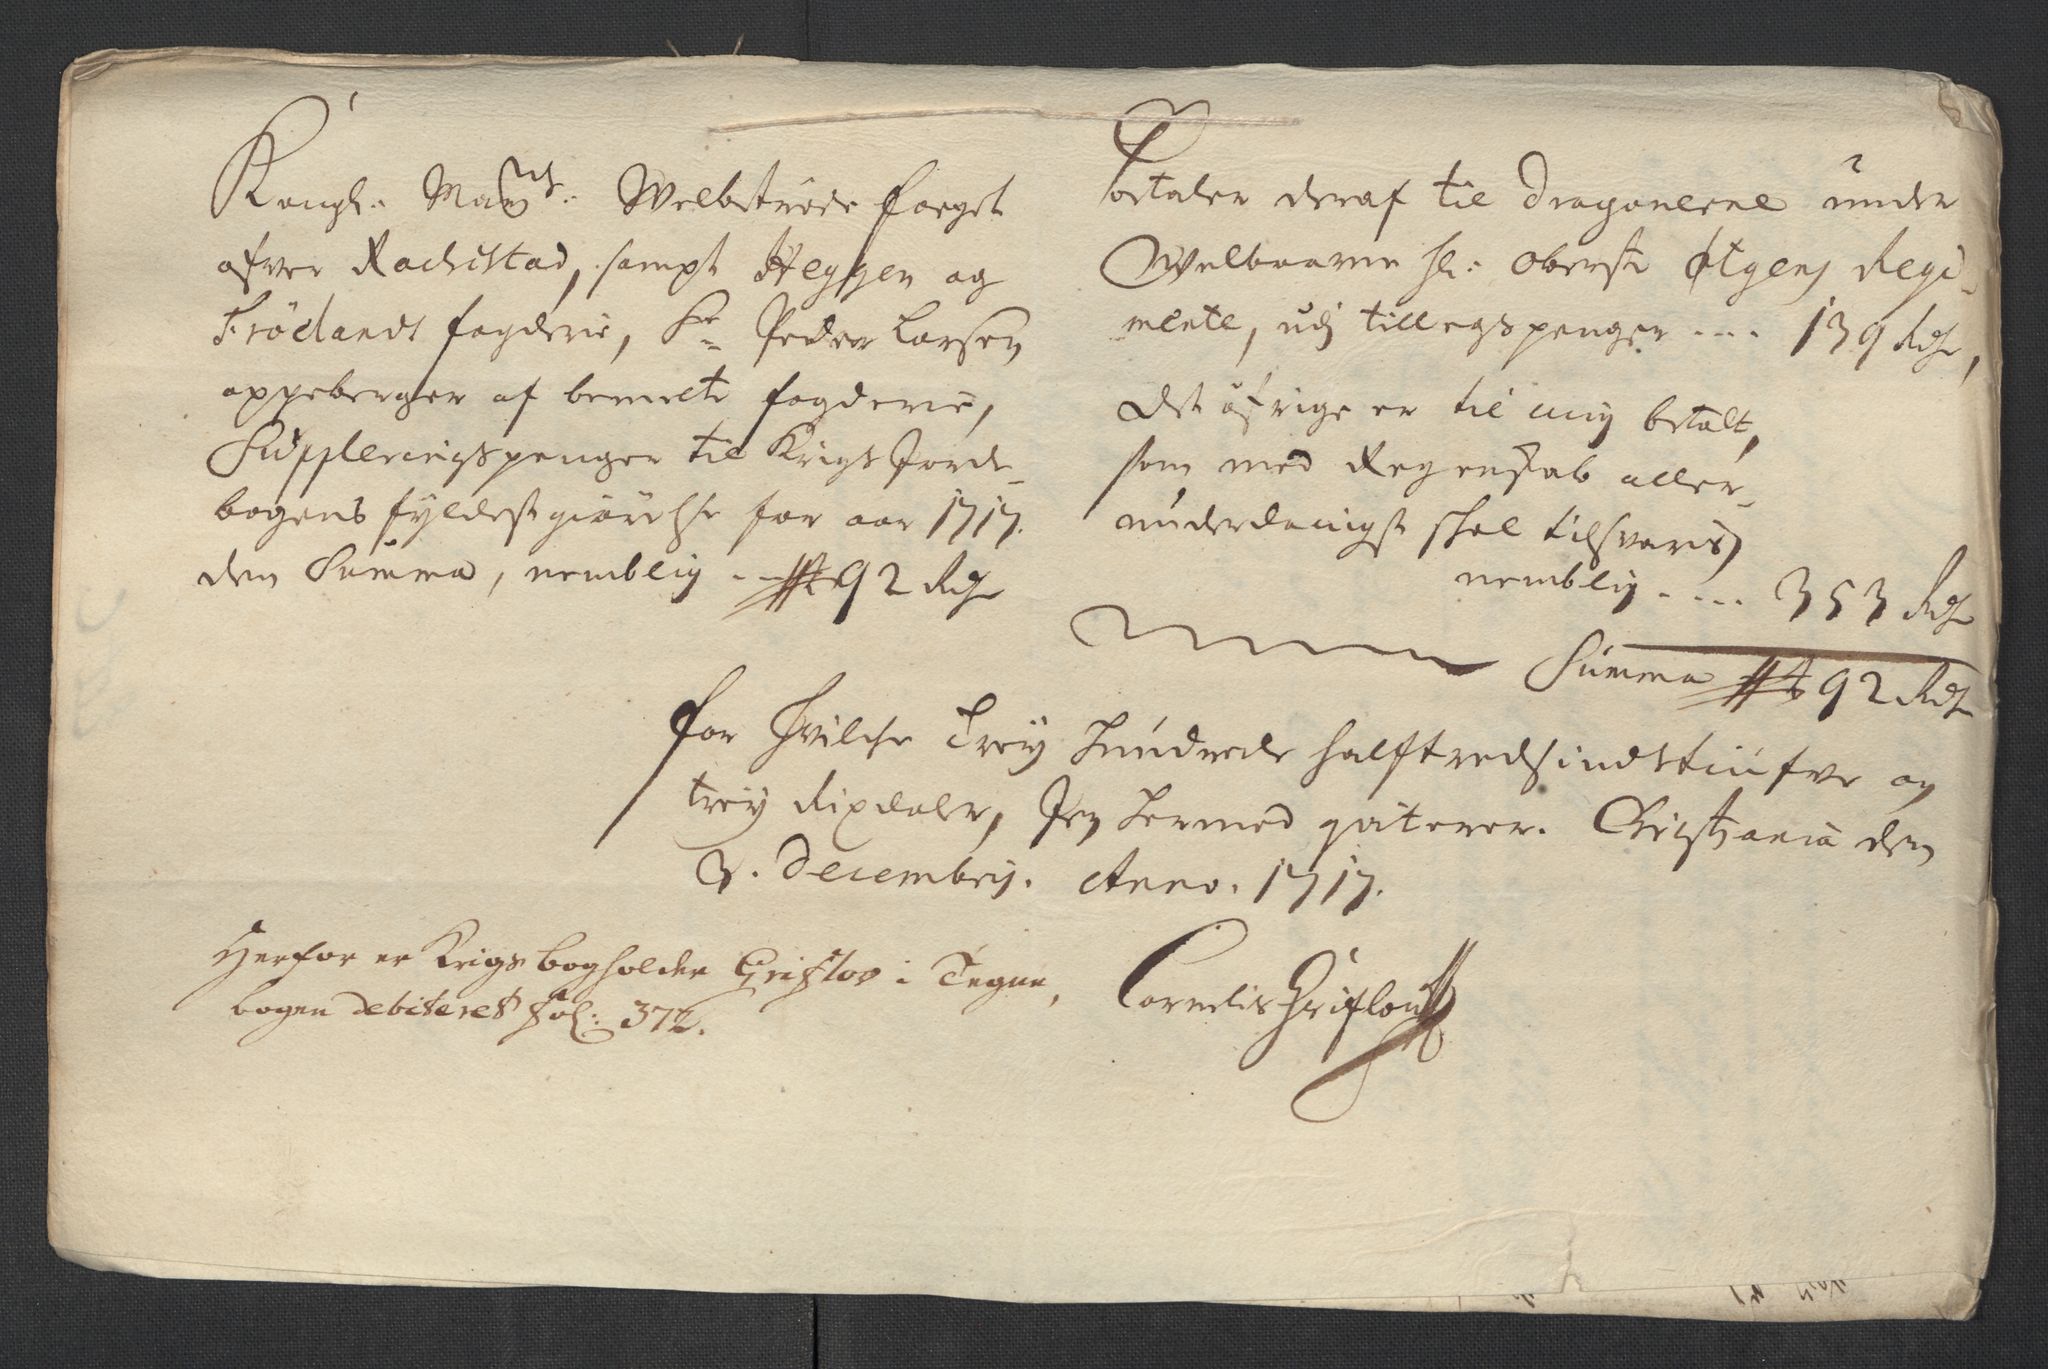 Kongl: May:ts: Welbetroede foeget
ofver Rachestad, sampt Heggen og
Frölandt fogderie, Sr Peder Larsen
oppeberger af bemelte fogderie,
Suppleringspenger til Krigs Jorde-
bogens fyldestgiörelse for aar 1717.
den Summa, nemblig 492 Rdr
Betaler deraf til Dragonerne under
Welbaarne Hr: Oberst Øtgens Regi-
mente, udj tillegspenger .... 139 Rdr,
Det öfrige er til mig betalt,
som med Regenskab aller-
underdanigst skal tilsvaris,
nemblig .... 353 Rdr
Summa 492 Rdr
for hvilche trey hundrede halftredsindstiufve og
trey Rixdaler, Jeg hermed qviterer. Christiania den
3. Decembris. Anno. 1717.
Cornelis Griflou
Herfor er Krigs bogholder Griflou i Tegne,
bogen debiteret fol: 372.